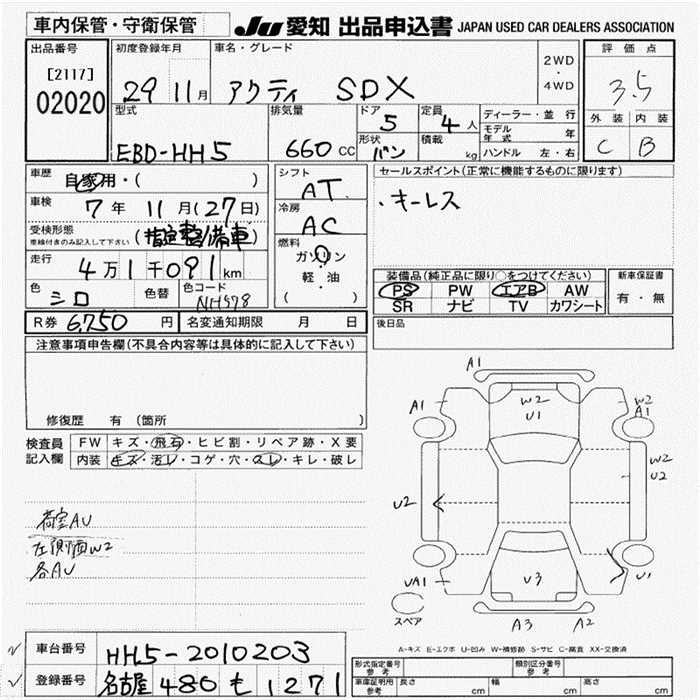 車内保管・守衛保管
JU 愛知 出品申込書 JAPAN USED CAR DEALERS ASSOCIATION
出品番号
[2117]
02020
初度登録年月
29 11月
車名・グレード
アクティ SDX
2WD
・
4WD
評価点
3.5
外装 内装
C B
型式
EBD-HH5
排気量
660 CC
ドア
5
形状
バン
定員
4 人
積載
kg
ディーラー・並行
モデル年式 年
ハンドル 左・右
車歴
自家用・( )
車検
7年 11月(27日)
受検形態
車検付きのみ記入して下さい
(指定整備車)
走行
4万1千091km
色
シロ
色替
色コード
NH578
シフト
AT
冷房
AC
燃料
ガソリン
軽・油
( )
セールスポイント(正常に機能するものに限ります)
・キーレス
装備品(純正品に限り○をつけてください)
PS PW エアB AW
SR ナビ TV カワシート
新車保証書
有・無
後日品
R券 6,750円
名変通知期限 月 日
注意事項申告欄(不具合内容等は具体的に記入して下さい)
修復歴 有 (箇所 )
検査員記入欄
FW キズ・飛石・ヒビ割・リペア跡・X要
内装 キズ・汚レ・コゲ・穴・スレ・キレ・破レ
荷室AU
左側面W2
各AU
A1
A1
W2
U1
W2
A1
W2
U2
U2
UA1
U3
U1
スペア
A3
A2
A-キズ E-エクボ U-凹み W-補修跡 S-サビ C-腐食 XX-交換済
車台番号 HH5-2010203
登録番号 名古屋 480 も 1271
形式指定番号
参考
類別区分番号
参考
車庫証明用
参考
長さ cm
幅 cm
高さ cm